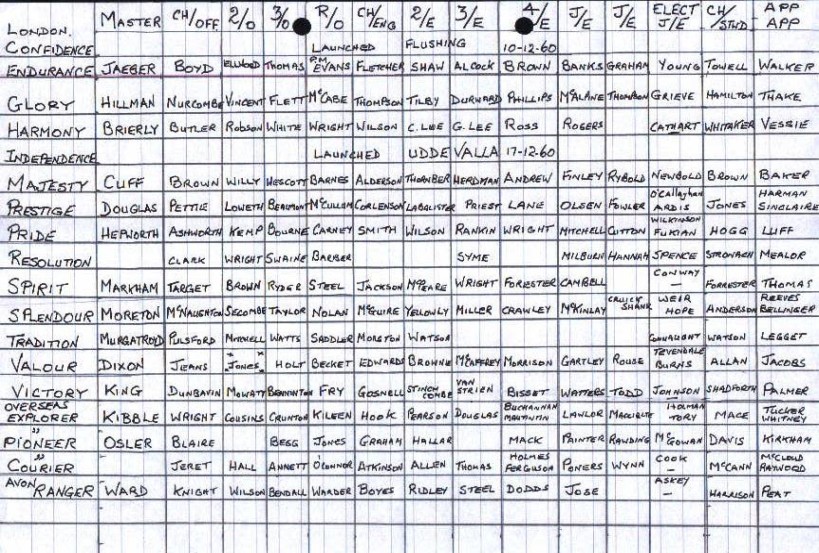 LONDON. MASTER CH/OFF 2/O 3/O R/O CH/ENG 2/E 3/E 4/E J/E J/E ELECT J/E CH/STWD APP APP
CONFIDENCE LAUNCHED FLUSHING 10-12-60
ENDURANCE JAEGER BOYD ELLWOOD THOMAS P.M. EVANS FLETCHER SHAW ALCOCK BROWN BANKS GRAHAM YOUNG TOWELL WALKER
GLORY HILLMAN NURCOMBE VINCENT FLETT McCABE THOMPSON TILBY DURWARD PHILLIPS McALANE THOMPSON GRIEVE HAMILTON THAKE
HARMONY BRIERLY BUTLER ROBSON WHITE WRIGHT WILSON C. LEE G. LEE ROSS ROGERS CATHART WHITAKER VESSIE
INDEPENDENCE LAUNCHED UDDEVALLA 17-12-60
MAJESTY CUFF BROWN WILLY HESCOTT BARNES ALDERSON THORNBER HERDMAN ANDREW FINLEY RYBOLD NEWBOLD BROWN BAKER
PRESTIGE DOUGLAS PETTIE LOWETH BEAUMONT McCULLUM CORLENSON LABALISTER PRIEST LANE OLSEN FOWLER O'Callaghan ARDIS JONES HARMAN SINCLAIRE
PRIDE HEPWORTH ASHWORTH KEMP BOURNE CARNEY SMITH WILSON RANKIN WRIGHT MITCHELL CUTTON WILKINSON FUKIAN HOGG LUFF
RESOLUTION CLARK WRIGHT SWAINE BARBER SYME MILBURN HANNAH SPENCE STRONACH MEALOR
SPIRIT MARKHAM TARGET BROWN RYDER STEEL JACKSON McPEARE WRIGHT FORRESTER CAMBELL CONWAY — FORRESTER THOMAS
SPLENDOUR MORETON McNAUGHTON SECOMBE TAYLOR NOLAN McGUIRE YELOWLY MILLER CRAWLEY McKINLAY CRUICKSHANK WEIR HOPE ANDERSON REEVES BELLINGER
TRADITION MURGATROYD PULSFORD MITCHELL WATTS SADDLER MORSTON WATSON CONNAUGHT WATSON LEGGET
VALOUR DIXON JEANS "JONES" HOLT BECKET EDWARDS BROWNE McCAFFREY MORRISON GARTLEY ROUSE TREVENDALE BURNS ALLAN JACOBS
VICTORY KING DUNGAVIN MOWATT BENNINTON FRY GOSNELL STINCHCOMBE VAN STRIEN BISSET WATTERS TODD JOHNSON SHADFORTH PALMER
OVERSEAS EXPLORER KIBBLE WRIGHT COUSINS CRUNTON KILEEN HOOK PEARSON DOUGLAS BUCHANNAN LAWLOR HOLMAN TORY MACE TUCKER WHITNEY
" PIONEER OSLER BLAIRE BEGG JONES GRAHAM HALLAR MACK PAINTER RAWDING McGOWAN DAVIS KIRKHAM
" COURIER JERET HALL ANNETT O'CONNOR ATKINSON ALLEN THOMAS HOLMES FERGUSON POWERS WYNN COOK — McCANN McCLOUD RAYWOOD
AVON RANGER WARD KNIGHT WILSON BENDALL WARDER BOYES RIDLEY STEEL DODDS JOSE ASKEY — HARRISON PEAT